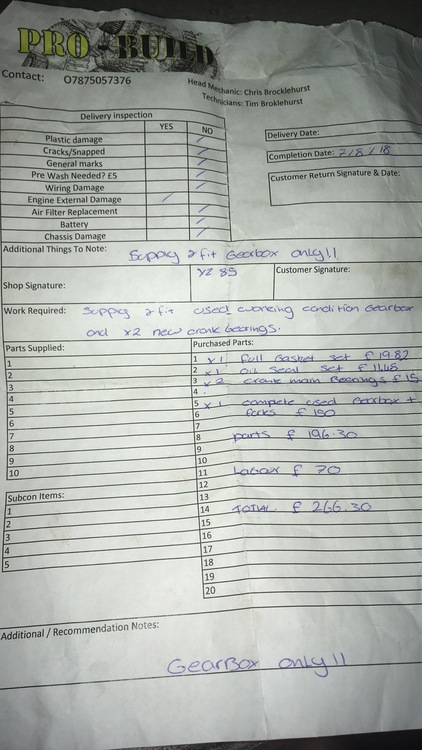 PRO-BUILD
Contact: 07875057376
Head Mechanic: Chris Brocklehurst
Technicians: Tim Broklehurst
Delivery inspection
YES NO
Plastic damage
Cracks/Snapped
General marks
Pre Wash Needed? £5
Wiring Damage
Engine External Damage
Air Filter Replacement
Battery
Chassis Damage
Delivery Date:
Completion Date: 7/8/18
Customer Return Signature & Date:
Additional Things To Note: Supply & fit Gearbox only!!
YZ 85
Shop Signature:
Customer Signature:
Work Required: Supply & fit used working condition Gearbox
and x2 new crank bearings.
Parts Supplied:
1
2
3
4
5
6
7
8
9
10
Subcon Items:
1
2
3
4
5
Purchased Parts:
1 x1 full Gasket set £19.82
2 x1 oil seal set £11.48
3 x2 crank main Bearings £15
4
5 x1 complete used Gearbox +
6 forks £150
7
8 parts £196.30
9
10
11 Labour £70
12
13
14 TOTAL £266.30
15
16
17
18
19
20
Additional / Recommendation Notes:
GearBox only!!